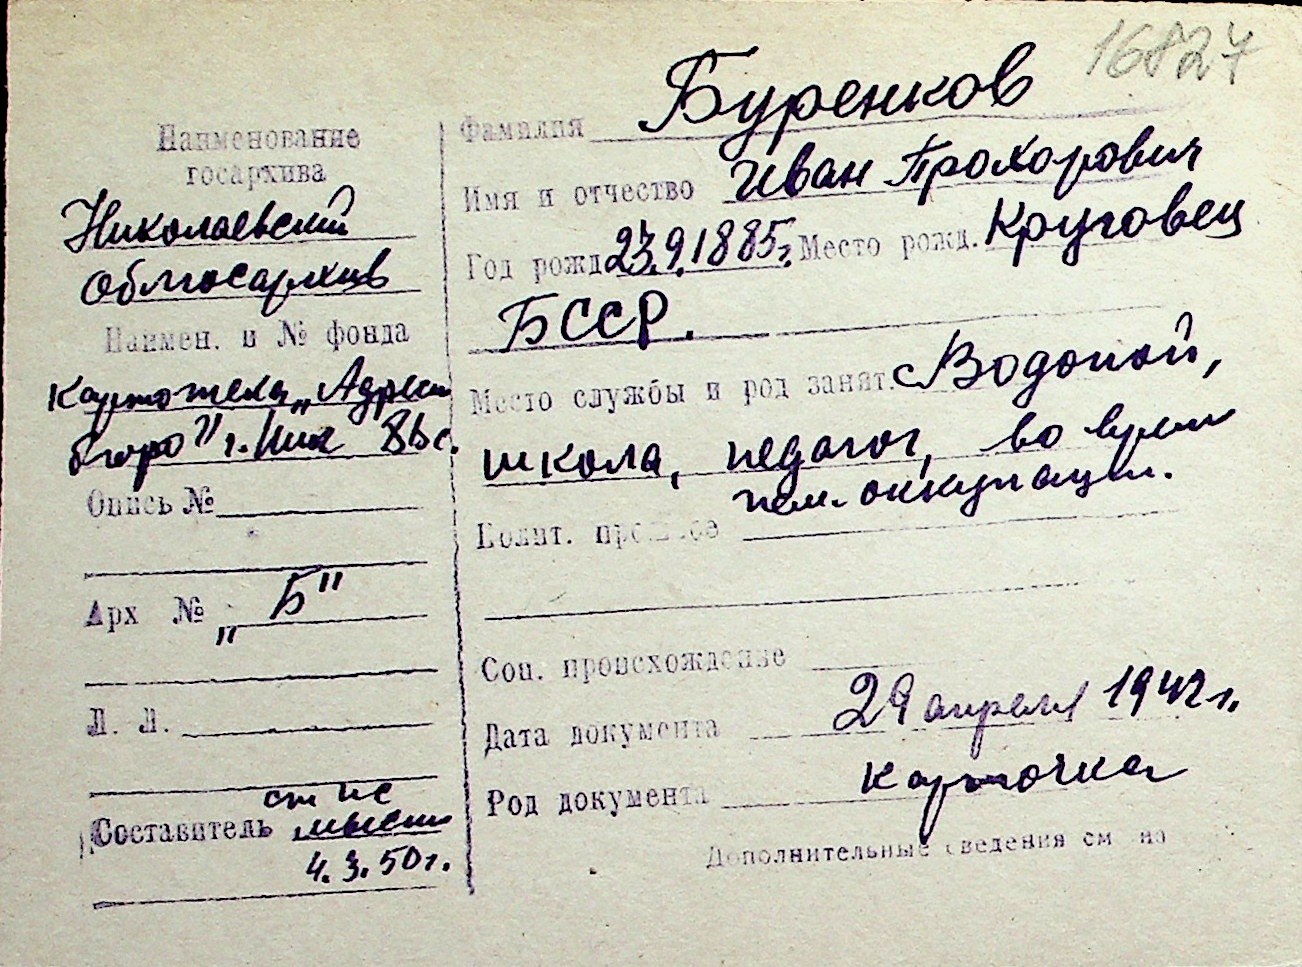 16827
Наименование
госархива
Николаевский
облгосархив
Наимен. и № фонда
Картотека „Адресн
бюро" г. Ник
Опись №
Арх № „Б"
Л. Л.
ст нс
Составитель
4.3.50г.
Фамилия Буренков
Имя и отчество Иван Прохорович
Год рожд. 23.9.1885г. Место рожд. Круговец
БССР.
Место службы и род занят. Водопой,
школа, педагог, во время
нем. оккупации.
Полит. прошлое
Соц. происхождение
Дата документа 29 апреля 1942г.
Род документа карточка
Дополнительные сведения см на